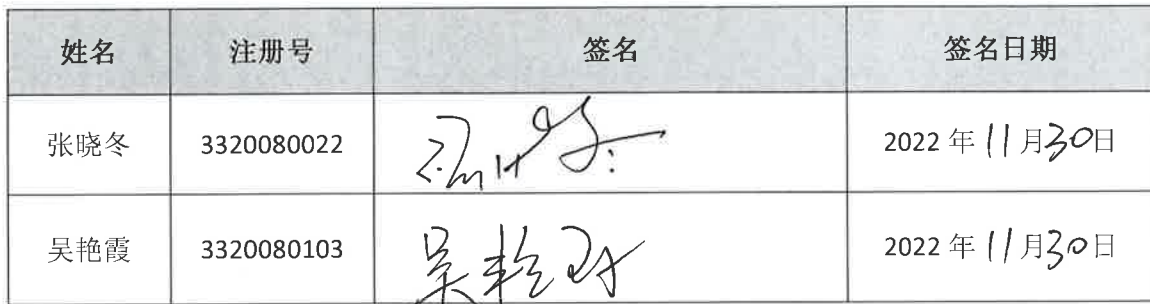 姓名 注册号 签名 签名日期
张晓冬 3320080022 2022 年 11 月 30 日
吴艳霞 3320080103 吴艳霞 2022 年 11 月 30 日